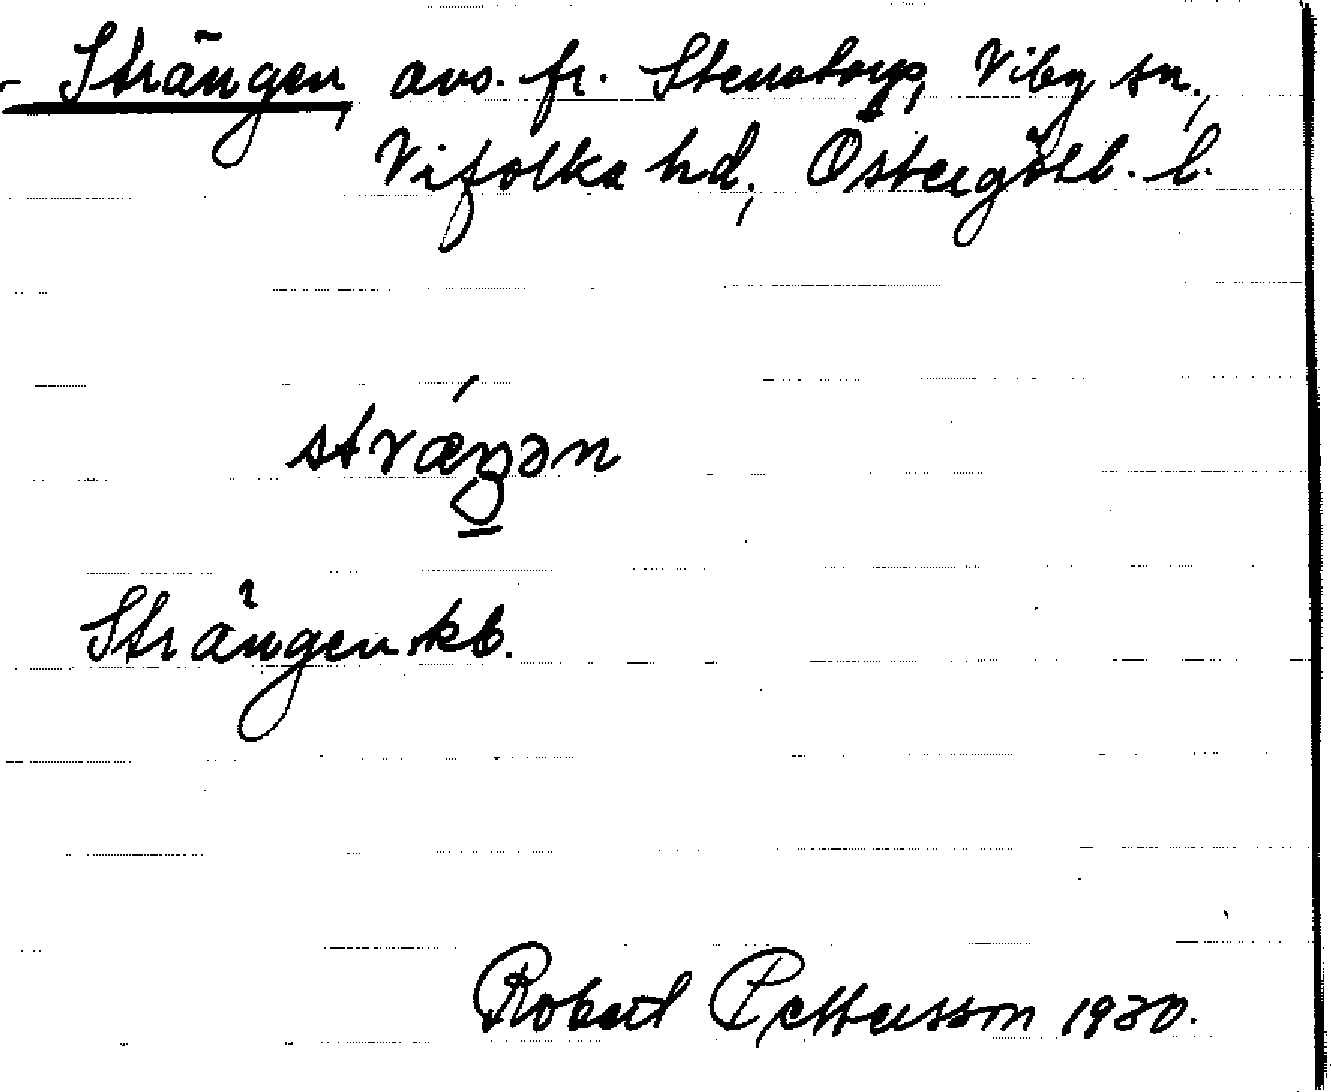 - Strängen, avs. fr. Stenstorp, Viby sn.,
Vifolka hd, Östergötl. l.
stræ´ŋən
Strängen kb.
Robert Pettersson 1930.